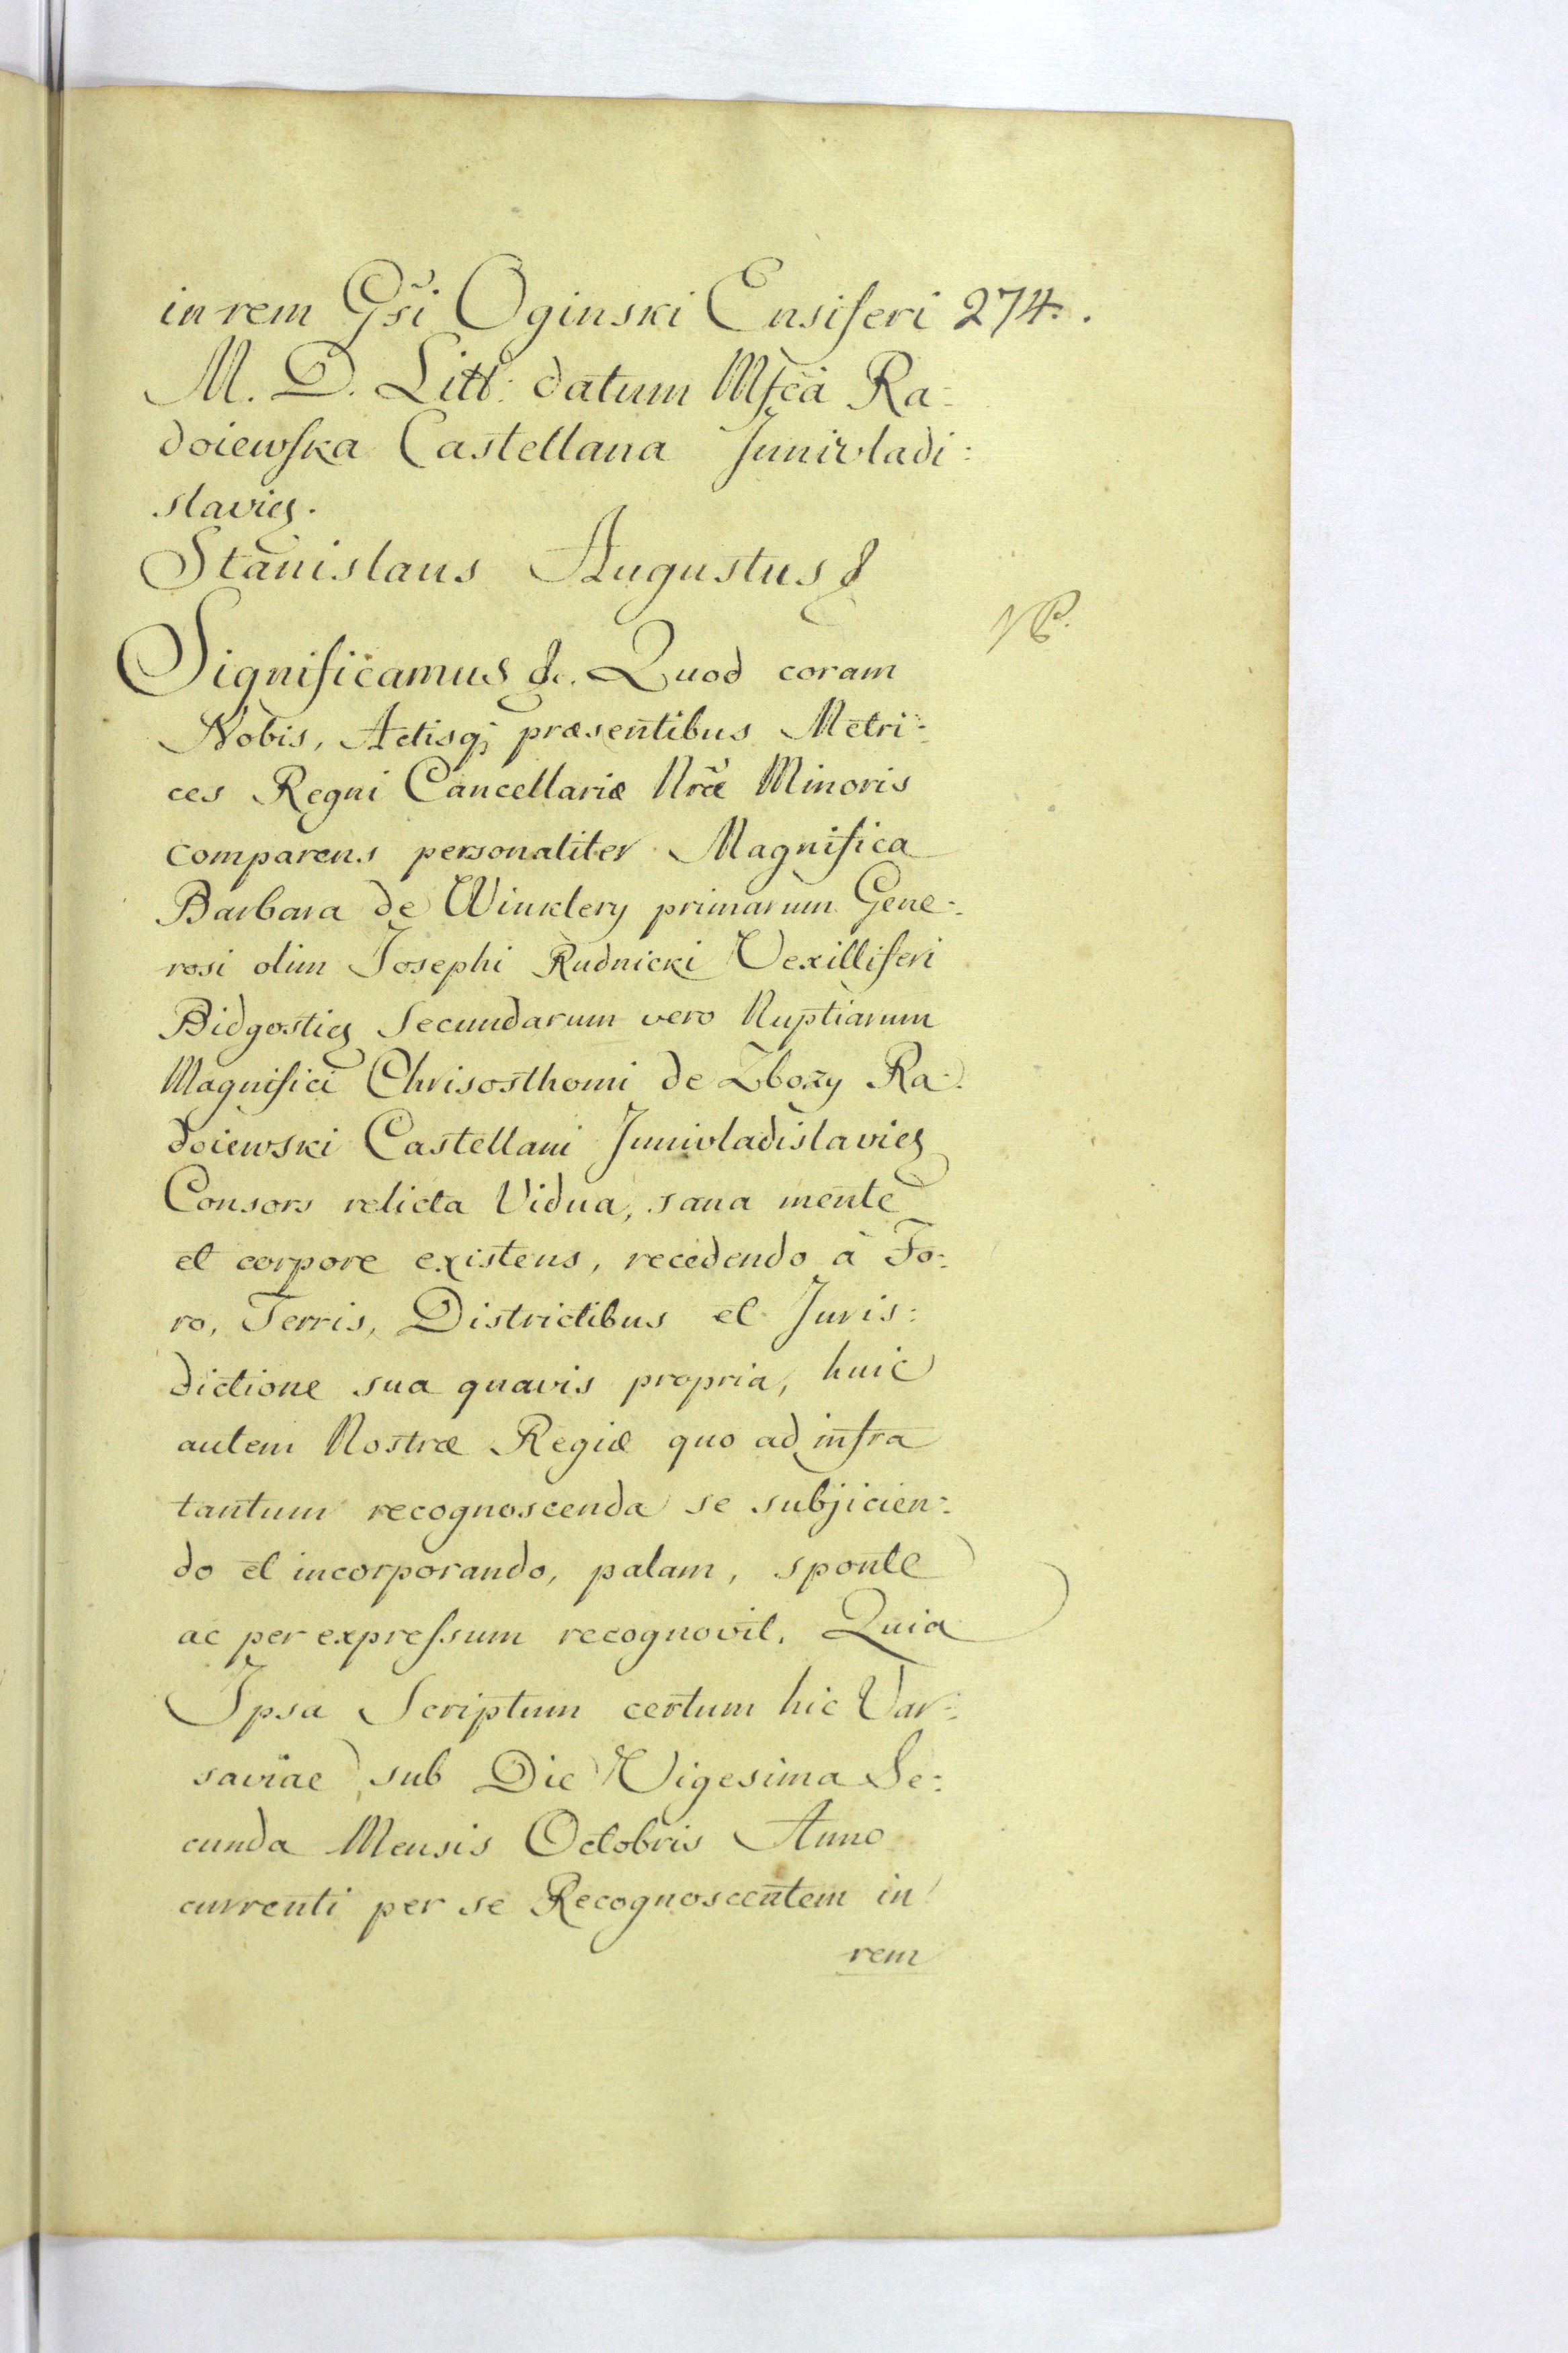 in rem Gsi Oginski Ensiferi 274.
M. D. Litt: datum Mfca Ra:
doiewska Castellana Junivladi:
slavieş.
Stanislaus Augustus &
Significamus &c. Quod coram
Nobis, Actisq; præsentibus Metri:
ces Regni Cancellariæ Nræ Minoris
comparens personaliter Magnifica
Barbara de Winklery primarum Gene:
rosi olim Josephi Rudnicki Vexilliferi
Bidgostieş Secundarum vero Nuptiarum
Magnifici Chrisosthomi de Zbozy Ra:
doiewski Castellani Junivladislavieş
Consors relicta Vidua, sana mente
et corpore existens, recedendo à Fo:
ro, Terris, Districtibus et Juris:
dictione sua quavis propria, huic
autem Nostræ Regiæ quo ad infra
tantum recognoscenda se subjicien:
do et incorporando, palam, sponte
ac per expressum recognovit, Quia
Ipsa Scriptum certum hic Var:
saviae sub Die Vigesima Se:
cunda Mensis Octobris Anno
currenti per se Recognoscentem in
rem